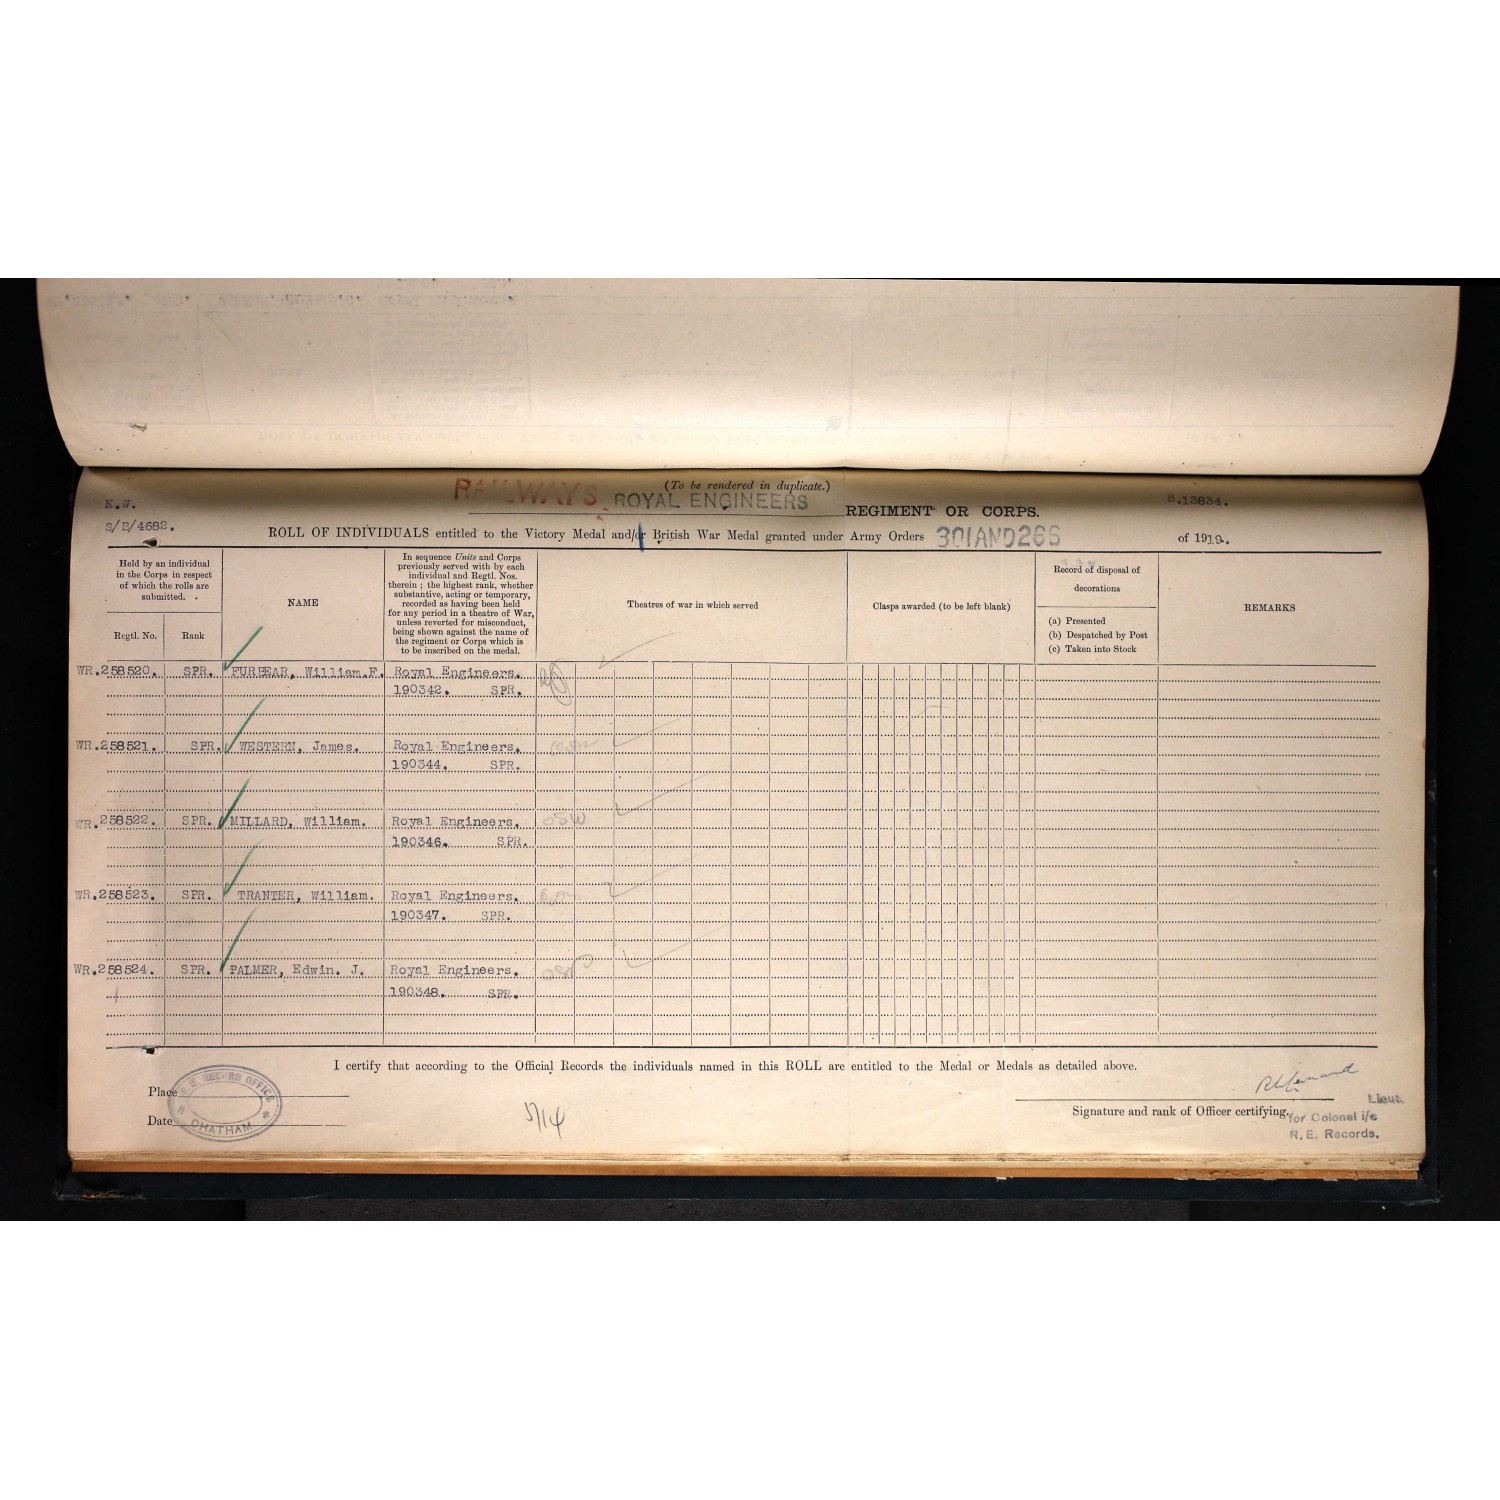 (To be rendered in duplicate.)
K.W. RAILWAYS. ROYAL ENGINEERS REGIMENT OR CORPS. B.13834.
S/B/4682.
ROLL OF INDIVIDUALS entitled to the Victory Medal and/or British War Medal granted under Army Orders 301AND266 of 1919.
Held by an individual
in the Corps in respect
of which the rolls are
submitted.
Regtl. No. Rank
NAME
In sequence Units and Corps
previously served with by each
individual and Regtl. Nos.
therein ; the highest rank, whether
substantive, acting or temporary,
recorded as having been held
for any period in a theatre of War,
unless reverted for misconduct,
being shown against the name of
the regiment or Corps which is
to be inscribed on the medal.
Theatres of war in which served
Clasps awarded (to be left blank)
Record of disposal of
decorations
(a) Presented
(b) Despatched by Post
(c) Taken into Stock
REMARKS
WR.258520. SPR. FURBEAR, William.F. Royal Engineers.
190342. SPR.
WR.258521. SPR. WESTERN, James. Royal Engineers.
190344. SPR.
WR.258522. SPR. MILLARD, William. Royal Engineers.
190346. SPR.
WR.258523. SPR. TRANTER, William. Royal Engineers.
190347. SPR.
WR.258524. SPR. PALMER, Edwin. J. Royal Engineers.
190348. SPR.
I certify that according to the Official Records the individuals named in this ROLL are entitled to the Medal or Medals as detailed above.
Place
R.E. RECORD OFFICE
CHATHAM
Date
Signature and rank of Officer certifying.
Lieut.
for Colonel i/c
R.E. Records.